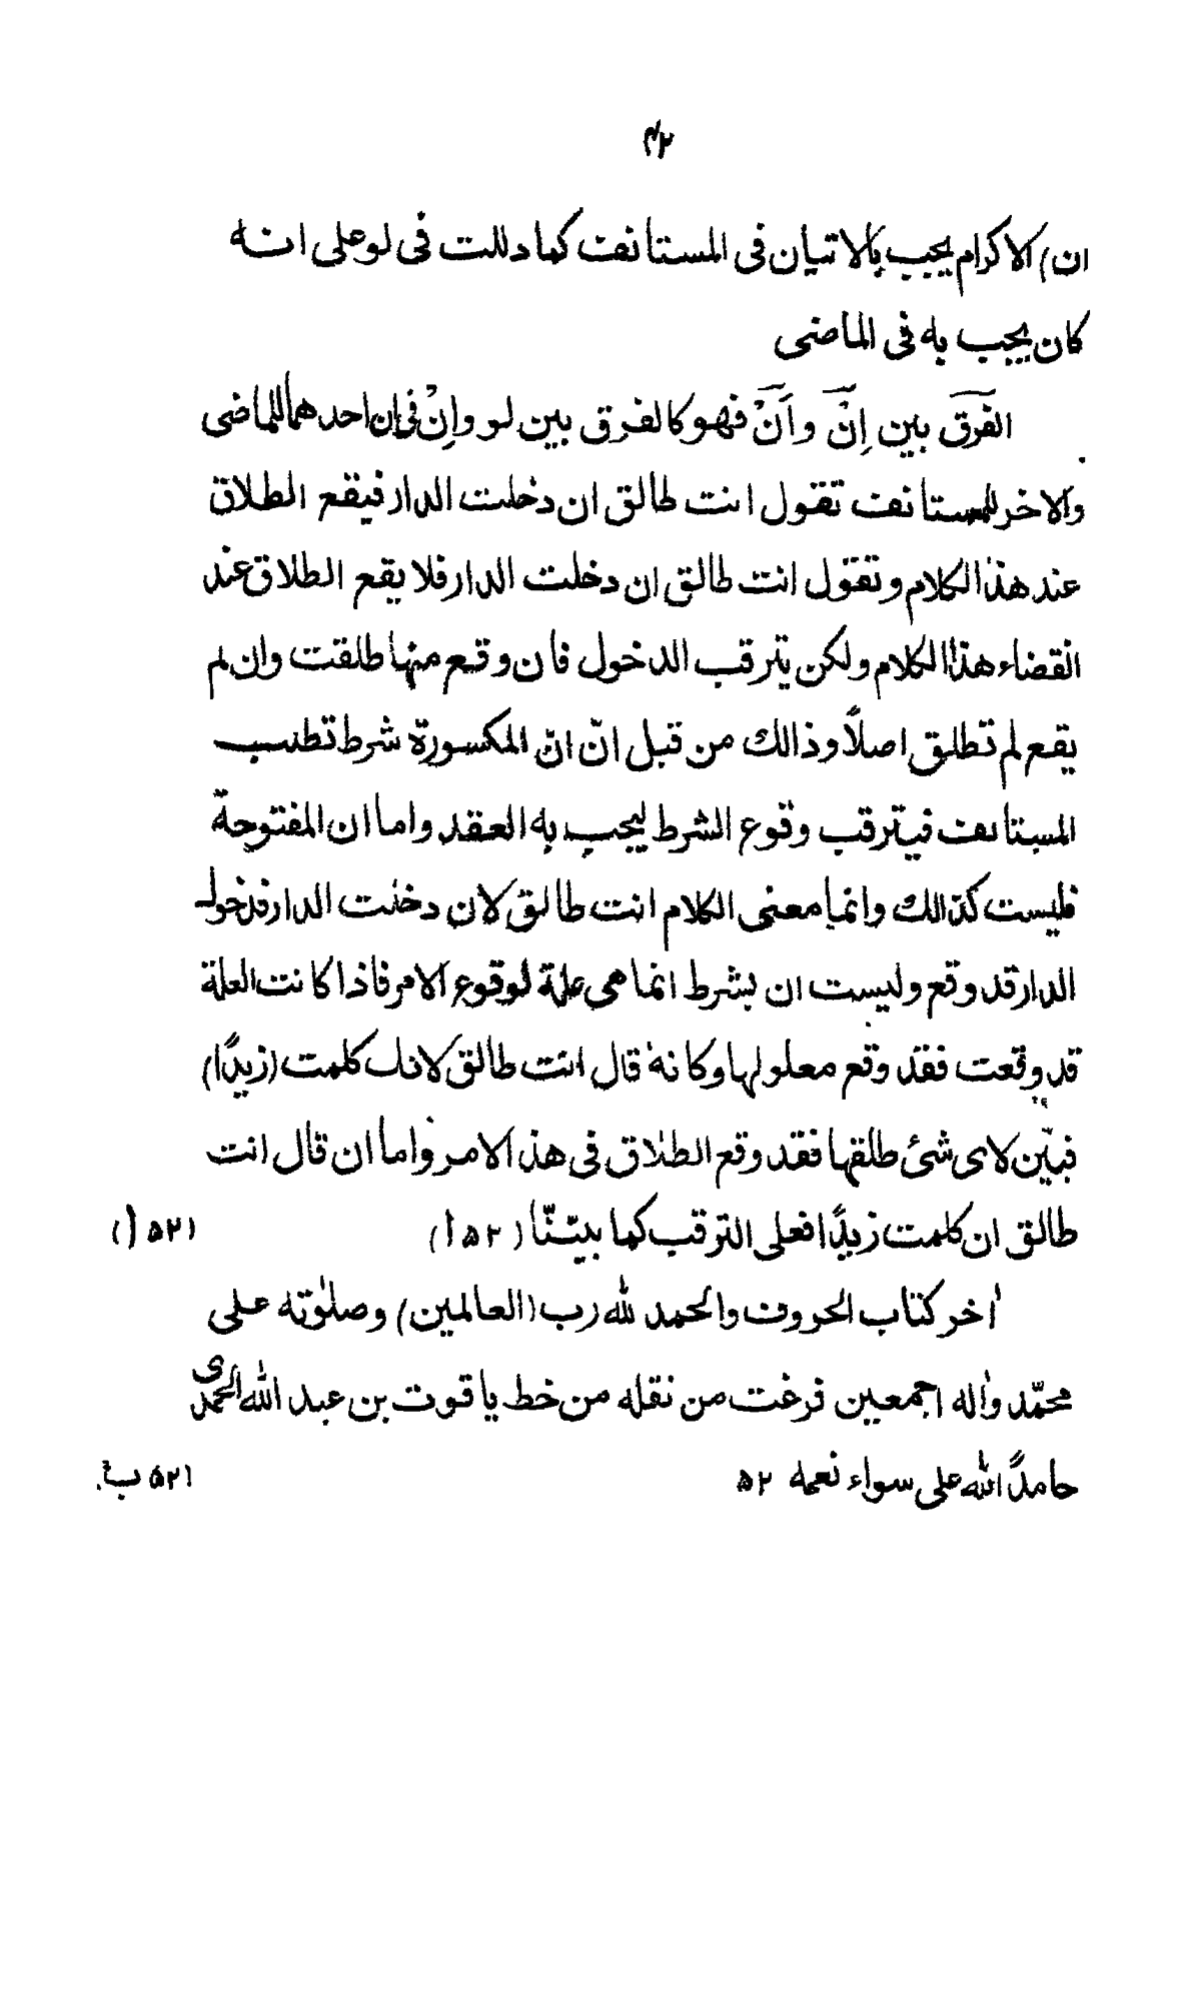 ۴۲
ان) الاكرام يجب بالاتيان فى المستانف كما دللت فى لو على انه
كان يجب به فى الماضى
الفرق بين اِنَّ وأنَّ فهو كالفرق بين لو واِنْ فى ان احدهما للماضى
والاخر للمستانف تقول انت طالق ان دخلت الدار فيقع الطلاق
عند هذا الكلام وتقول انت طالق ان دخلت الدار فلا يقع الطلاق عند
انقضاء هذا الكلام ولكن يترقب الدخول فان وقع منها طلقت وان لم
يقع لم تطلق اصلاً وذالك من قبل انّ انّ المكسورة شرط تطلب
المستانف فيترقب وقوع الشرط ليجب به العقد واما ان المفتوحة
فليست كذالك وانما معنى الكلام انت طالق لان دخلت الدار فدخول
الدار قد وقع وليست ان بشرط انما هى علة لوقوع الامر فاذا كانت العلة
قد وقعت فقد وقع معلولها وكانه قال انت طالق لانك كلمت (زيدًا)
فبيّن لاى شئ طلقها فقد وقع الطلاق فى هذ الامر واما ان قال انت
طالق ان كلمت زيدًا فعلى الترقب كما بيّنّا (۵۲ أ) (۵۲ أ)
اٰخر كتاب الحروف والحمد لله رب (العالمين) وصلوٰته على
محمّد واٰله اجمعين فرغت من نقله من خط ياقوت بن عبد الله الحموى
حامدًا لله على سواء نعمه ۵۲ (۵۲ ب)